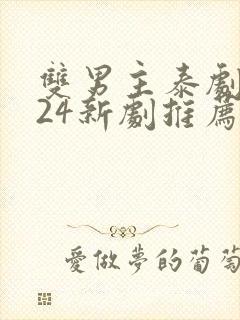 雙男主泰劇
24新劇推薦
愛做夢的葡萄